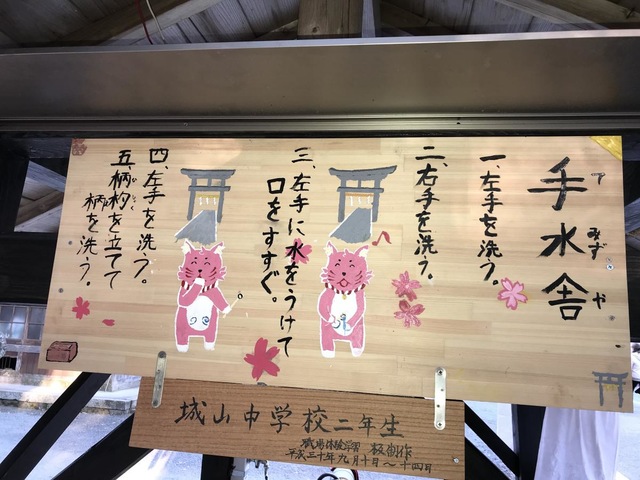 手水舎
ア みず や
一、左手を洗う。
二、右手を洗う。
三、左手に水をうけて
口をすすぐ。
四、左手を洗う。
五、柄杓を立てて
柄を洗う。
城山中学校二年生
職場体験学習
平成三十年九月十日～十四日